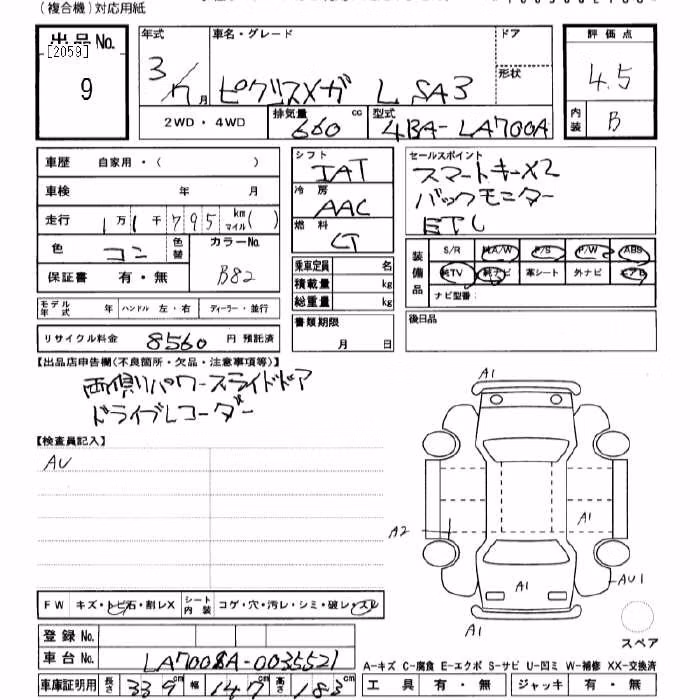 (複合機)対応用紙
出品No.
[2059]
9
年式
3/7月
車名・グレード
ピクシスメガ L SA3
ドア
形状
評価点
4.5
内装
B
2WD・4WD
排気量
660 cc
型式
4BA-LA700A
車歴 自家用・( )
車検 年 月
走行 1万1千795 km マイル( )
色 コン 色替
カラーNo.
B82
保証書 有・無
モデル年式 年 ハンドル 左・右 ディーラー・並行
リサイクル料金 8560 円 預託済
シフト
IAT
冷房
AAC
燃料
乗車定員 名
積載量 kg
総重量 kg
書類期限
月 日
セールスポイント
スマートキーX2
バックモニター
ETC
装備品
S/R 純A/W P/S P/W ABS
純TV 純ナビ 革シート 外ナビ エアB
ナビ型番:
後日品
【出品店申告欄(不良箇所・欠品・注意事項等)】
両側パワースライドドア
ドライブレコーダー
【検査員記入】
AU
FW キズ・トビ石・割レX シート内装 コゲ・穴・汚レ・シミ・破レ・スレ
登録No.
車台No. LA700SA-0035521
車庫証明用 長さ 339cm 幅 147cm 高さ 183cm
A1
A1
A2
A1
AU1
A1
スペア
A-キズ C-腐食 E-エクボ S-サビ U-凹ミ W-補修 XX-交換済
工具 有・無 ジャッキ 有・無